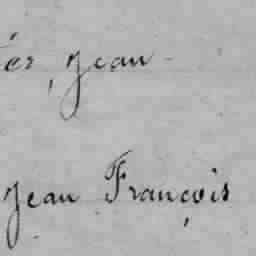 Jean
Jean François